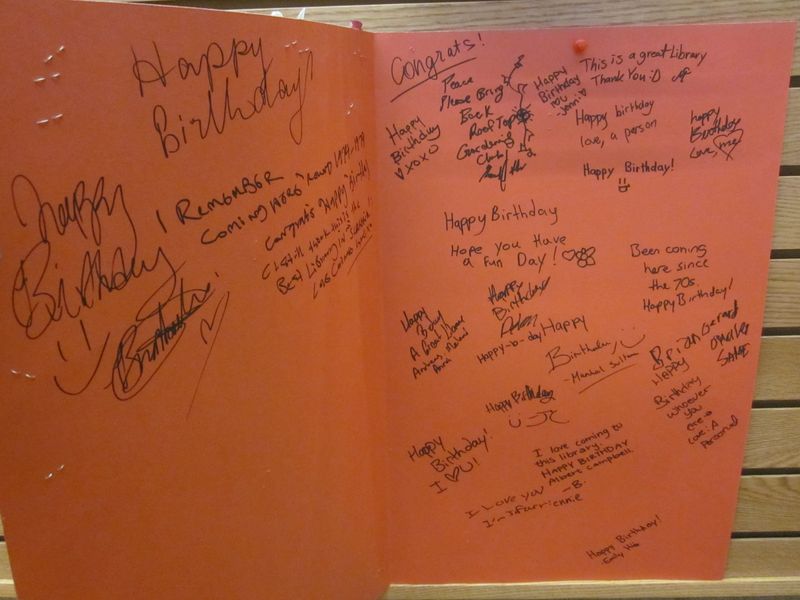 Happy
Birthday!
Happy
Birthday
I REMEMBER
COMING HERE
1974-1979
CONGRATS "Happy Birthday"
I still think this is the
Best Library in
Congrats!
Peace
Please Bring
Back
Roof Top
Gardening
Club
Happy
Birthday
xoxo
Happy
Birthday
Jenni
This is a great Library
Thank You :D
Happy birthday
love, a person
happy
Birthday
Love, me
Happy Birthday!
Happy Birthday
Hope you Have
a fun Day!
Been coming
here since
the 70s.
Happy Birthday!
Happy
Bday
A Great
Happy
Birthday
Happy-b-day
Happy
Birthday
Brian Gerard
HAPPY
Birthday
whoever
you
are
Love: A
person
Happy Birthday
Happy
Birthday!
I U!
I love coming to
this library.
HAPPY BIRTHDAY
Albert Campbell.
-B.
I love you
Happy Birthday!